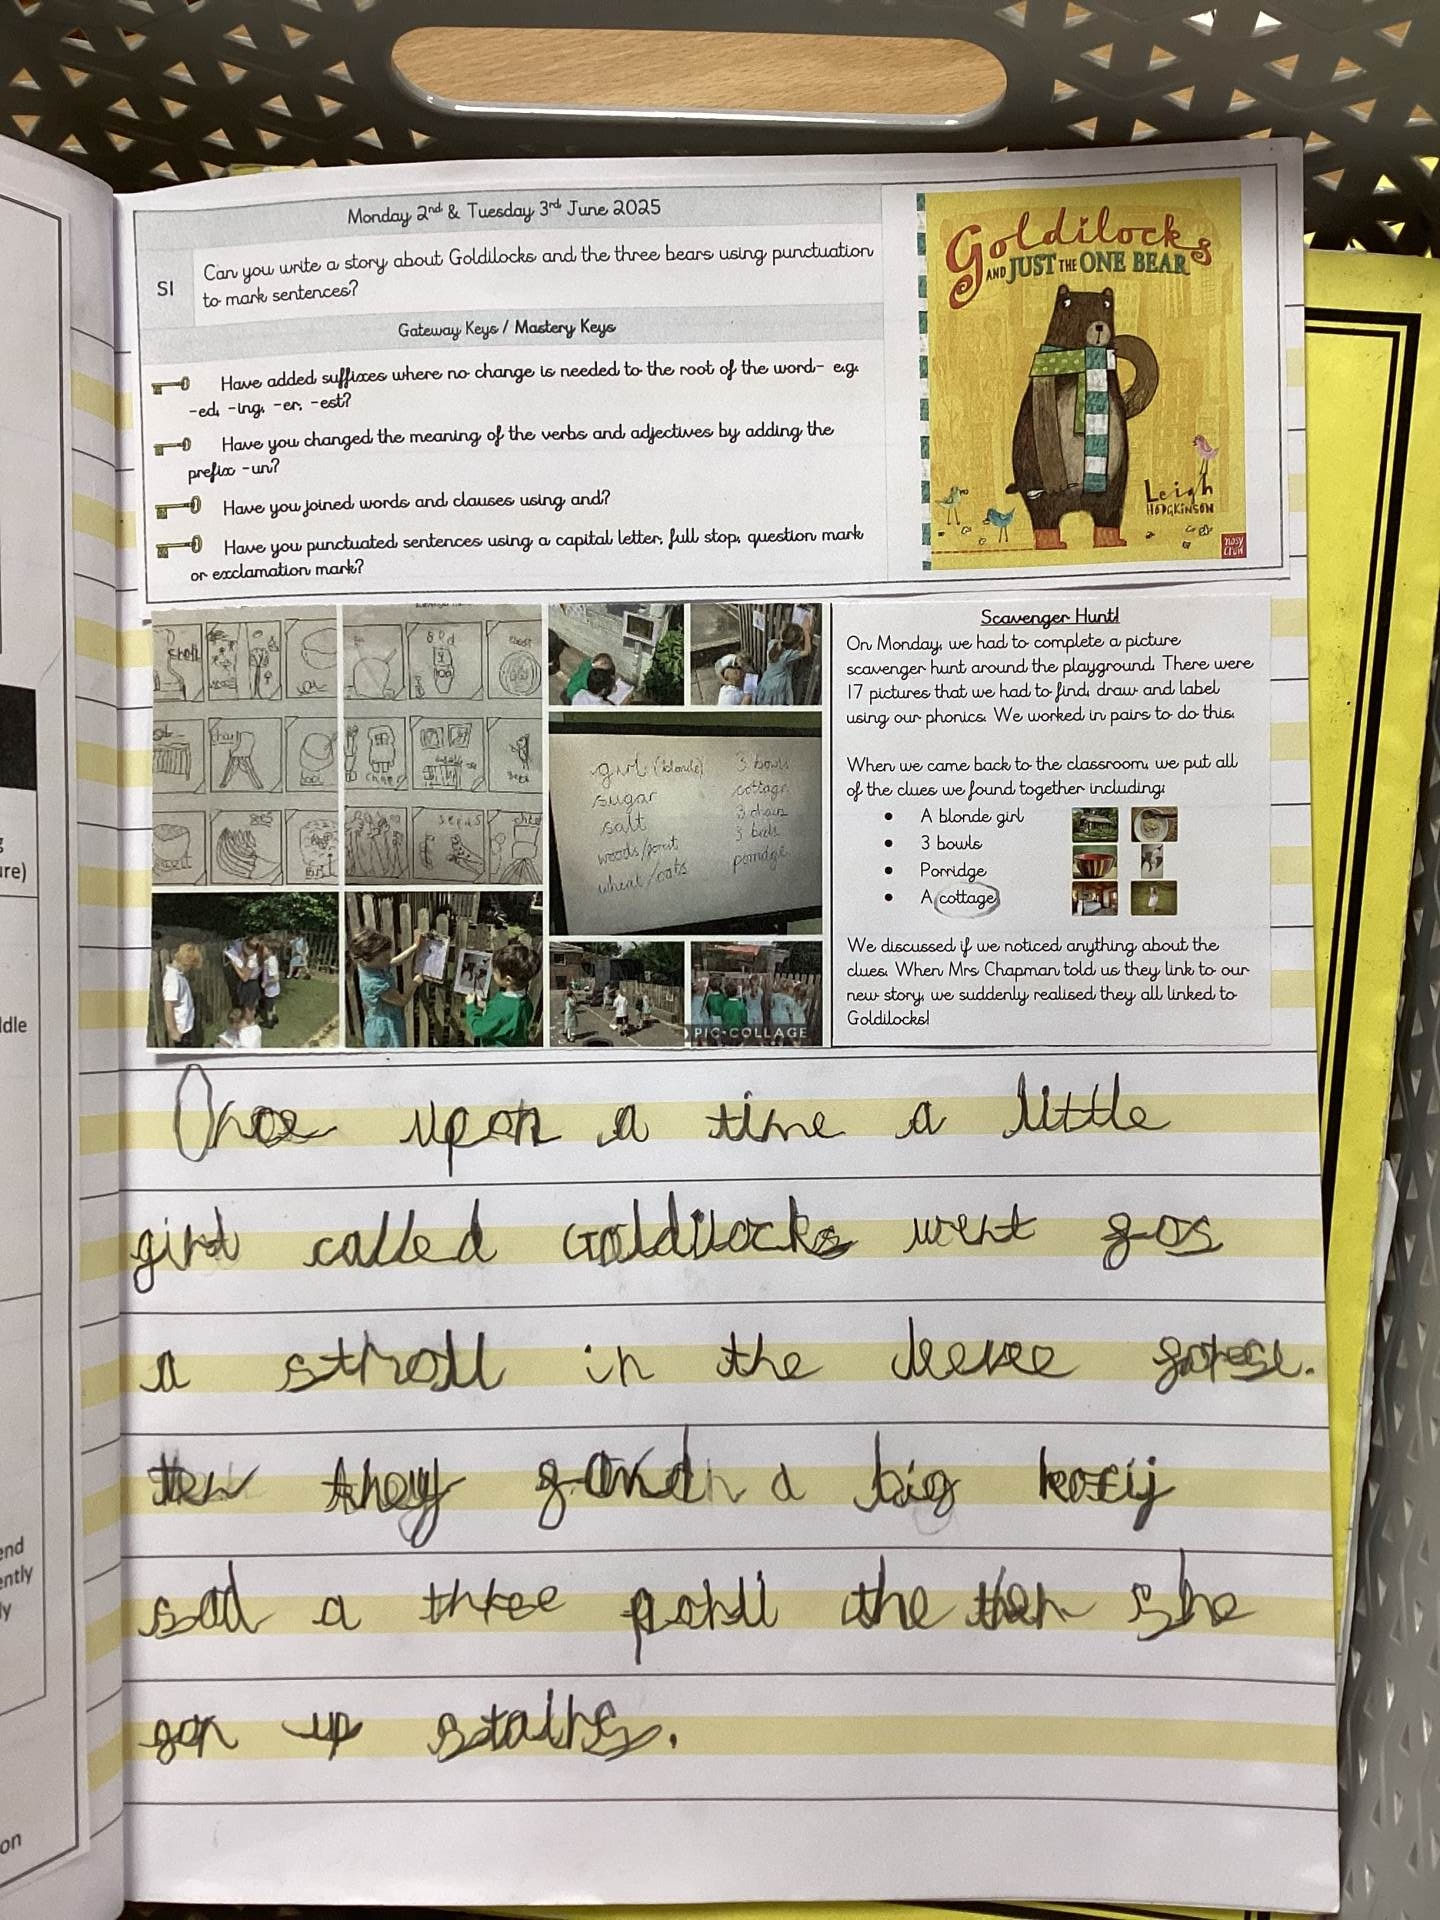 Monday 2nd & Tuesday 3rd June 2025
SI
Can you write a story about Goldilocks and the three bears using punctuation
to mark sentences?
Gateway Keys / Mastery Keys
Have added suffixes where no change is needed to the root of the word- e.g.
-ed, -ing, -er, -est?
Have you changed the meaning of the verbs and adjectives by adding the
prefix -un?
Have you joined words and clauses using and?
Have you punctuated sentences using a capital letter, full stop, question mark
or exclamation mark?
Goldilocks
AND JUST THE ONE BEAR
Leigh
HODGKINSON
nosy
crow
girl (blonde)
sugar
salt
wheat/oats
3 bowls
cottage
3 chairs
3 beds
porridge
PIC•COLLAGE
Scavenger Hunt!
On Monday, we had to complete a picture
scavenger hunt around the playground. There were
17 pictures that we had to find, draw and label
using our phonics. We worked in pairs to do this.
When we came back to the classroom, we put all
of the clues we found together including:
• A blonde girl
• 3 bowls
• Porridge
• A cottage
We discussed if we noticed anything about the
clues. When Mrs Chapman told us they link to our
new story, we suddenly realised they all linked to
Goldilocks!
Once upon a time a little
girl called Goldilocks went
a stroll in the
they a big
a three the then she
up stairs.